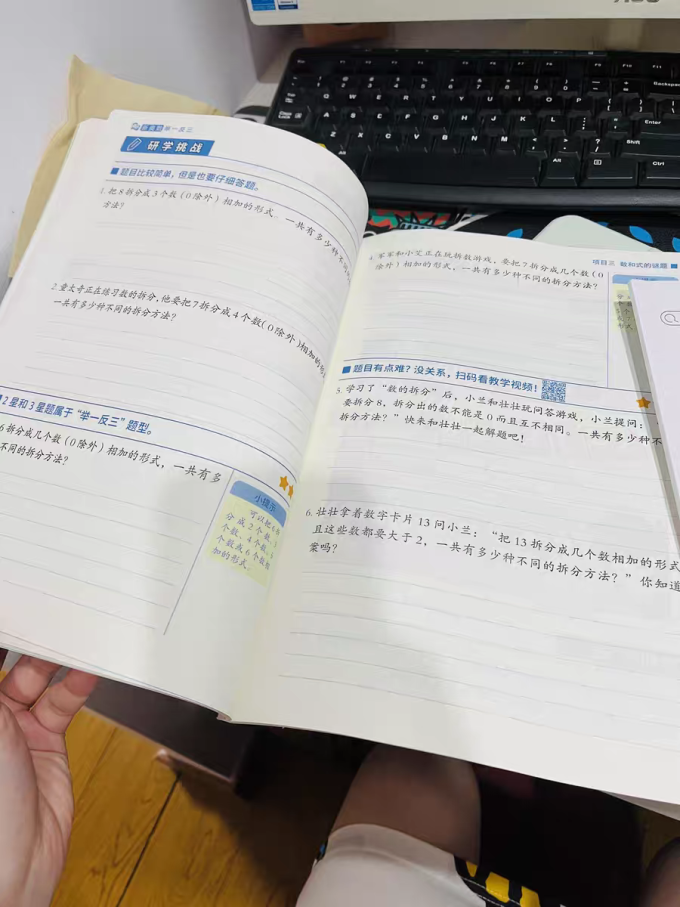 举一反三
研学挑战
题目比较简单,但是也要仔细答题。
1.把8拆分成3个数(0除外)相加的形式,一共有多少种不同
方法?
2.童大奇正在练习数的拆分,他要把7拆分成4个数(0除外)相加的形
一共有多少种不同的拆分方法?
2星和3星题属于“举一反三”题型。
6拆分成几个数(0除外)相加的形式,一共有多
不同的拆分方法?
小提示
可以把6拆
分成2个数、3
个数、4个数、5
个数或6个数相
加的形式。
项目三 数和式的谜题
4.军军和小艾正在玩拆数游戏,要把7拆分成几个数(0
除外)相加的形式,一共有多少种不同的拆分方法?
题目有点难?没关系,扫码看教学视频!
5.学习了“数的拆分”后,小兰和壮壮玩问答游戏,小兰提问:
要拆分8,拆分出的数不能是0而且互不相同。一共有多少种不
拆分方法?”快来和壮壮一起解题吧!
6.壮壮拿着数字卡片13问小兰:“把13拆分成几个数相加的形式
且这些数都要大于2,一共有多少种不同的拆分方法?”你知道
案吗?